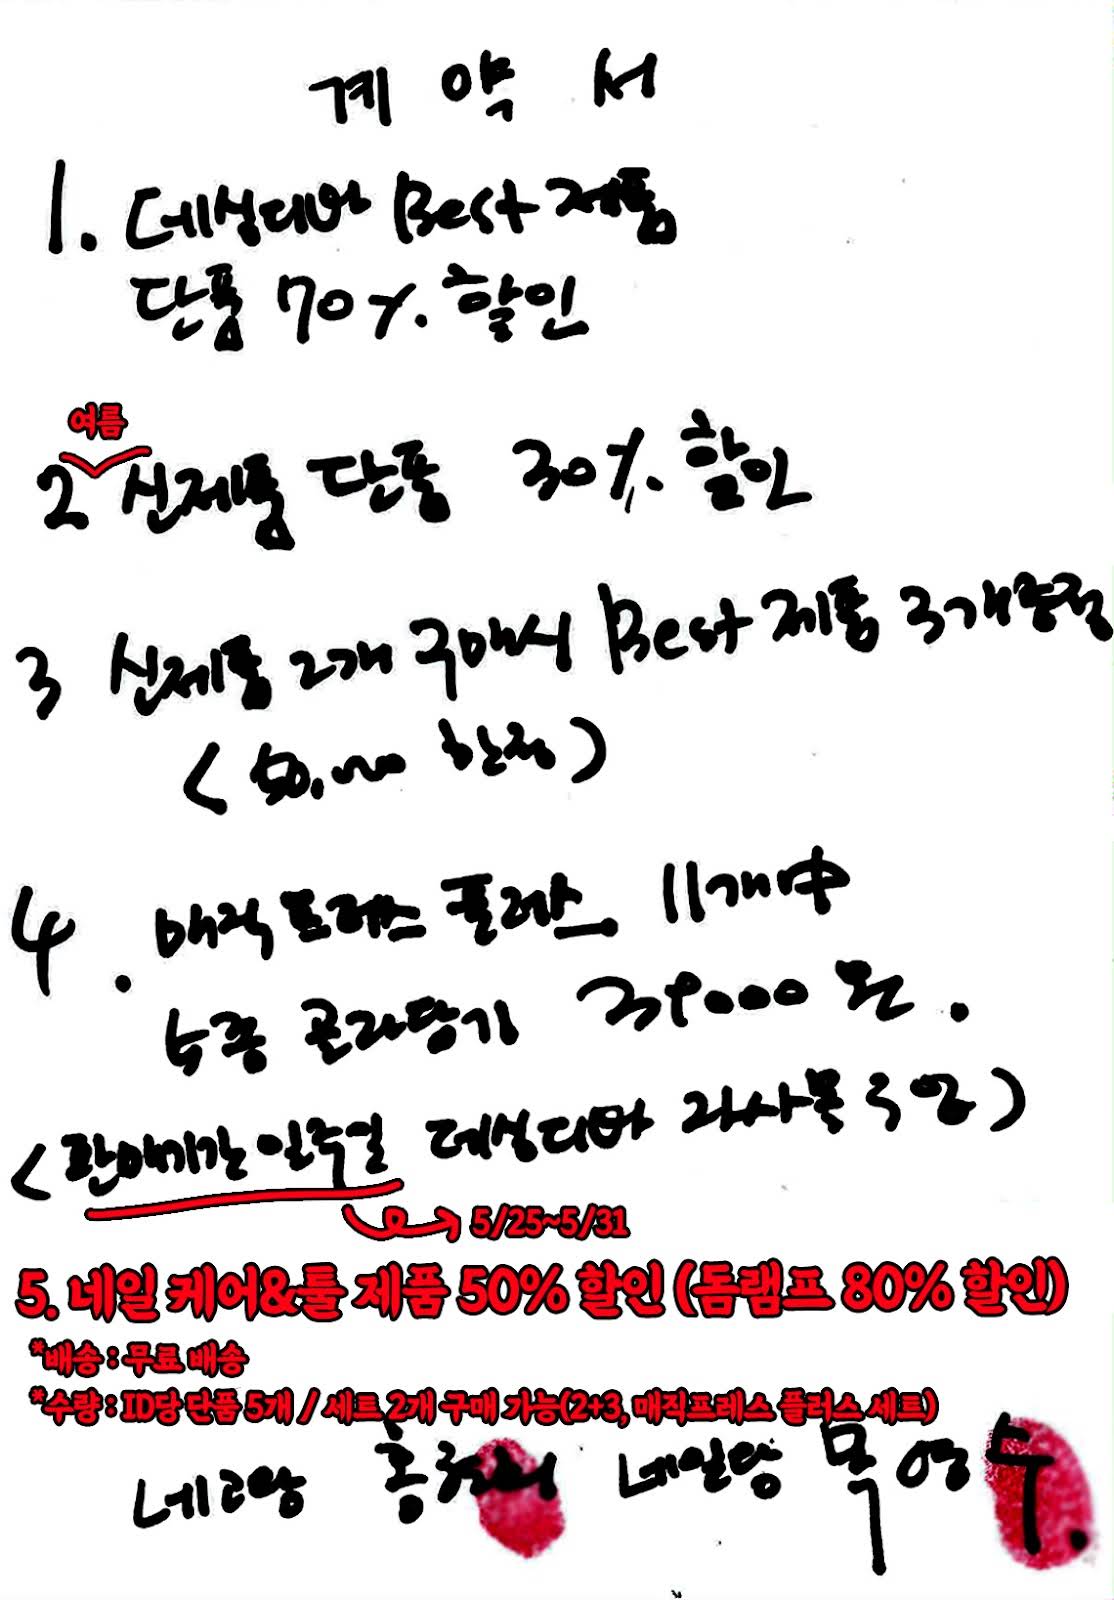 계약서
1. 데싱디바 Best 제품
단품 70%. 할인
여름
2 신제품 단품 30%. 할인
3 신제품 2개 구매시 Best 제품 3개 증정
(50,000 한정)
4. 매직프레스 플레스 11개中
4종 골라담기 39000원.
(판매기간 일주일 데싱디바 자사몰 주영)
5/25~5/31
5. 네일 케어&툴 제품 50% 할인 (돔램프 80% 할인)
*배송 : 무료 배송
*수량 : ID당 단품 5개 / 세트 2개 구매 가능(2+3, 매직프레스 플러스 세트)
네고왕 홍현희 네일당 목영수.